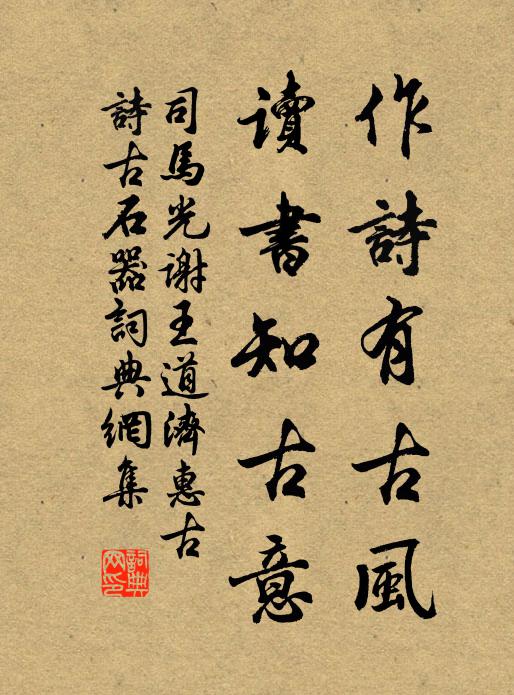 作詩有古風
讀書知古意
司馬光謝王道濟惠古
詩古石器詞典網集
詞典網印